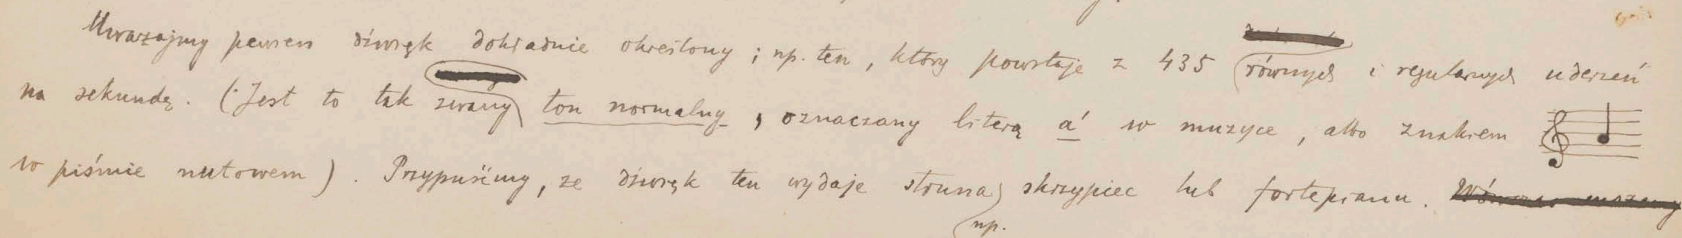 Uważajmy pewien dźwięk dokładnie określony; np. ten, który powstaje z 435 równych i regularnych uderzeń
na sekundę. (Jest to tak zwany ton normalny, oznaczany literą á w muzyce, albo znakiem
w piśmie nutowem). Przypuśćmy, ze dźwięk ten wydaje struna skrzypiec lub fortepianu.
np.